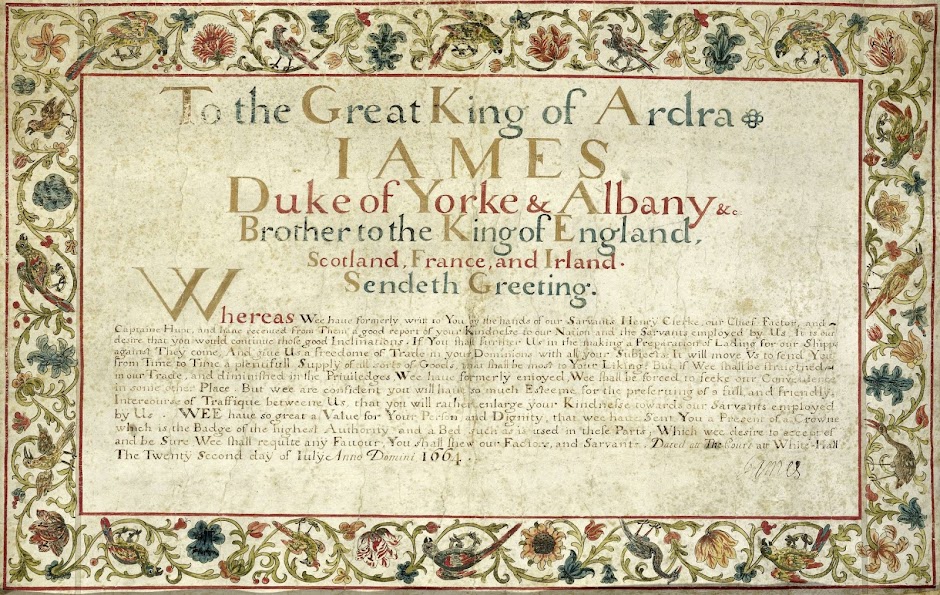 To the Great King of Ardra
IAMES
Duke of Yorke & Albany &c.
Brother to the King of England,
Scotland, France, and Irland.
Sendeth Greeting.
Whereas Wee have formerly writt to You by the hands of our Sarvants Henry Clerke our Chief Factor, and
Captaine Hunt, and have received from Them a good report of your Kindnesse to our Nation and the Sarvants employed by Us. It is our
desire that you would continue those good Inclinations. If You shall further Us in the making a Preparation of Lading for our Shipps
against They come, And give Us a freedome of Trade in your Dominions with all your Subjects. It will move Vs to send You
from Time to Time a plentifull Supply of all sorts of Goods, that shall be most to Your Liking: But if Wee shall be straightned
in our Trade, and diminished in the Priviledges Wee have formerly enjoyed, Wee shall be forced to seeke our Convenience
in some other Place. But wee are confident you will have so much Esteeme for the preserving of a full and friendly
Intercourse of Traffique betweene Us, that you will rather enlarge your Kindnesse towards our Sarvants employed
by Us. WEE have so great a Value for Your Person and Dignity, that wee have Sent You a Present of a Crowne
which is the Badge of the highest Authority, and a Bed such as is used in these Parts, Which wee desire to accept of
and be Sure Wee shall requite any Favour, You shall shew our Factors, and Sarvants. Dated at The Court att White-Hall
The Twenty Second day of Iuly Anno Domini 1664.
James